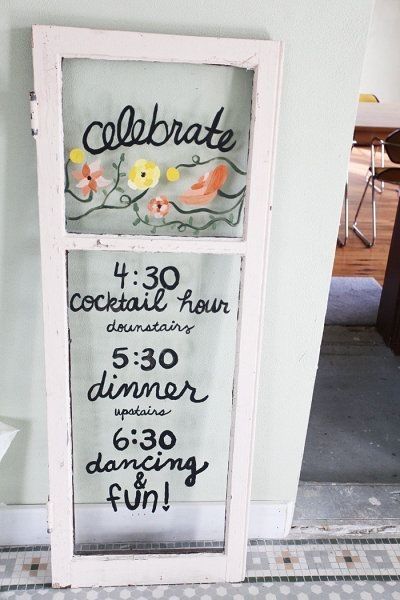 celebrate
4:30
cocktail hour
downstairs
5:30
dinner
upstairs
6:30
dancing
&
fun!